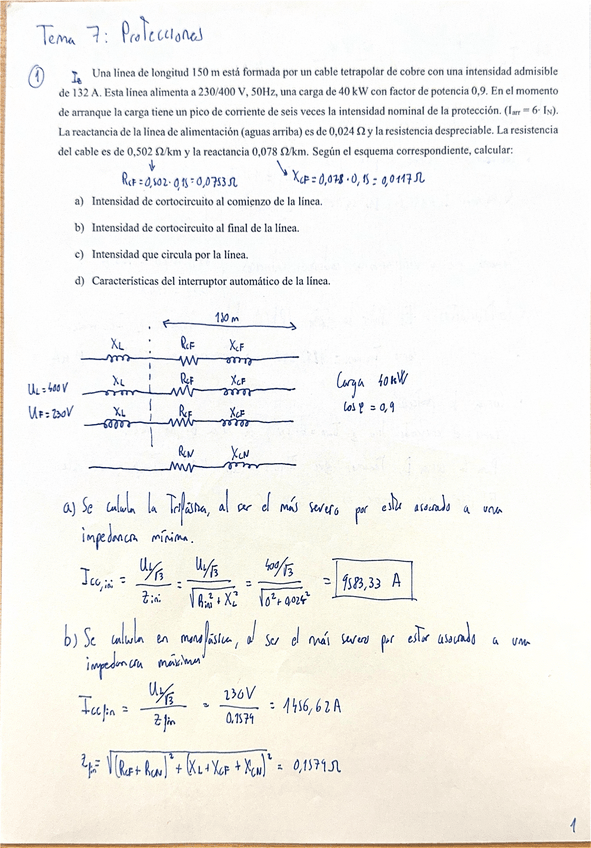 Tema 7: Protecciones
① Iz Una línea de longitud 150 m está formada por un cable tetrapolar de cobre con una intensidad admisible
de 132 A. Esta línea alimenta a 230/400 V, 50Hz, una carga de 40 kW con factor de potencia 0,9. En el momento
de arranque la carga tiene un pico de corriente de seis veces la intensidad nominal de la protección. (Iarr = 6· IN).
La reactancia de la línea de alimentación (aguas arriba) es de 0,024 Ω y la resistencia despreciable. La resistencia
del cable es de 0,502 Ω/km y la reactancia 0,078 Ω/km. Según el esquema correspondiente, calcular:
RCF = 0,502 · 0,15 = 0,0753 Ω XCF = 0,078 · 0,15 = 0,0117 Ω
a) Intensidad de cortocircuito al comienzo de la línea.
b) Intensidad de cortocircuito al final de la línea.
c) Intensidad que circula por la línea.
d) Características del interruptor automático de la línea.
150 m
XL RCF XCF
UL = 400V XL RCF XCF Carga 40 kW
UF = 230V XL RCF XCF cos φ = 0,9
RCN XCN
a) Se calcula la Trifásica, al ser el más severo por estar asociado a una
impedancia mínima.
Icc,ini = (UL/√3)/Zini = (UL/√3)/√(Rini² + XL²) = (400/√3)/√(0² + 0,024²) = 9583,33 A
b) Se calcula en monofásica, al ser el más severo por estar asociado a una
impedancia máxima
Icc fin = (UL/√3)/Zfin = 230V/0,1579 = 1456,62 A
Zfin = √((RCF + RCN)² + (XL + XCF + XCN)²) = 0,1579 Ω
1